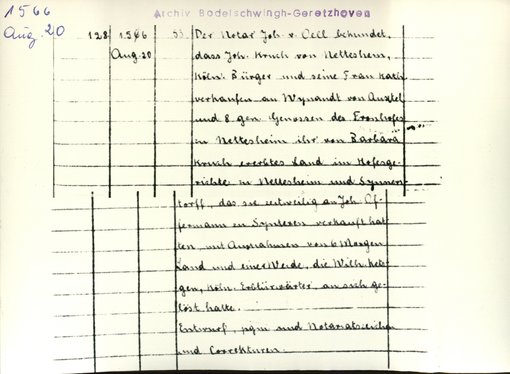 1566
Aug. 20
Archiv Bodelschwingh-Geretzhoven
128 1566 53. Der Notar Joh. v. Ceil bekundet,
Aug. 20 dass Joh. Kruch von Nettesheim,
Köln. Bürger und seine Frau Kath.
verkaufen an Wynandt von Anxtel
und 8 gen. Genossen des Fronhofes
zu Nettesheim ihr von Barbara
Kruch ererbtes Land im Hofesge-
richte zu Nettesheim und Synner-
torff, das sie zeitweilig an Joh. Of-
fermann zu Synteren verkauft hat-
ten, mit Ausnahmen von 6 Morgen
Land und einer Weide, die Wilh. Kets-
gen, Köln. Erbtürwärter, an sich ge-
löst hatte.
Entwurf, pgm und Notariatszeichen
und Correkturen.